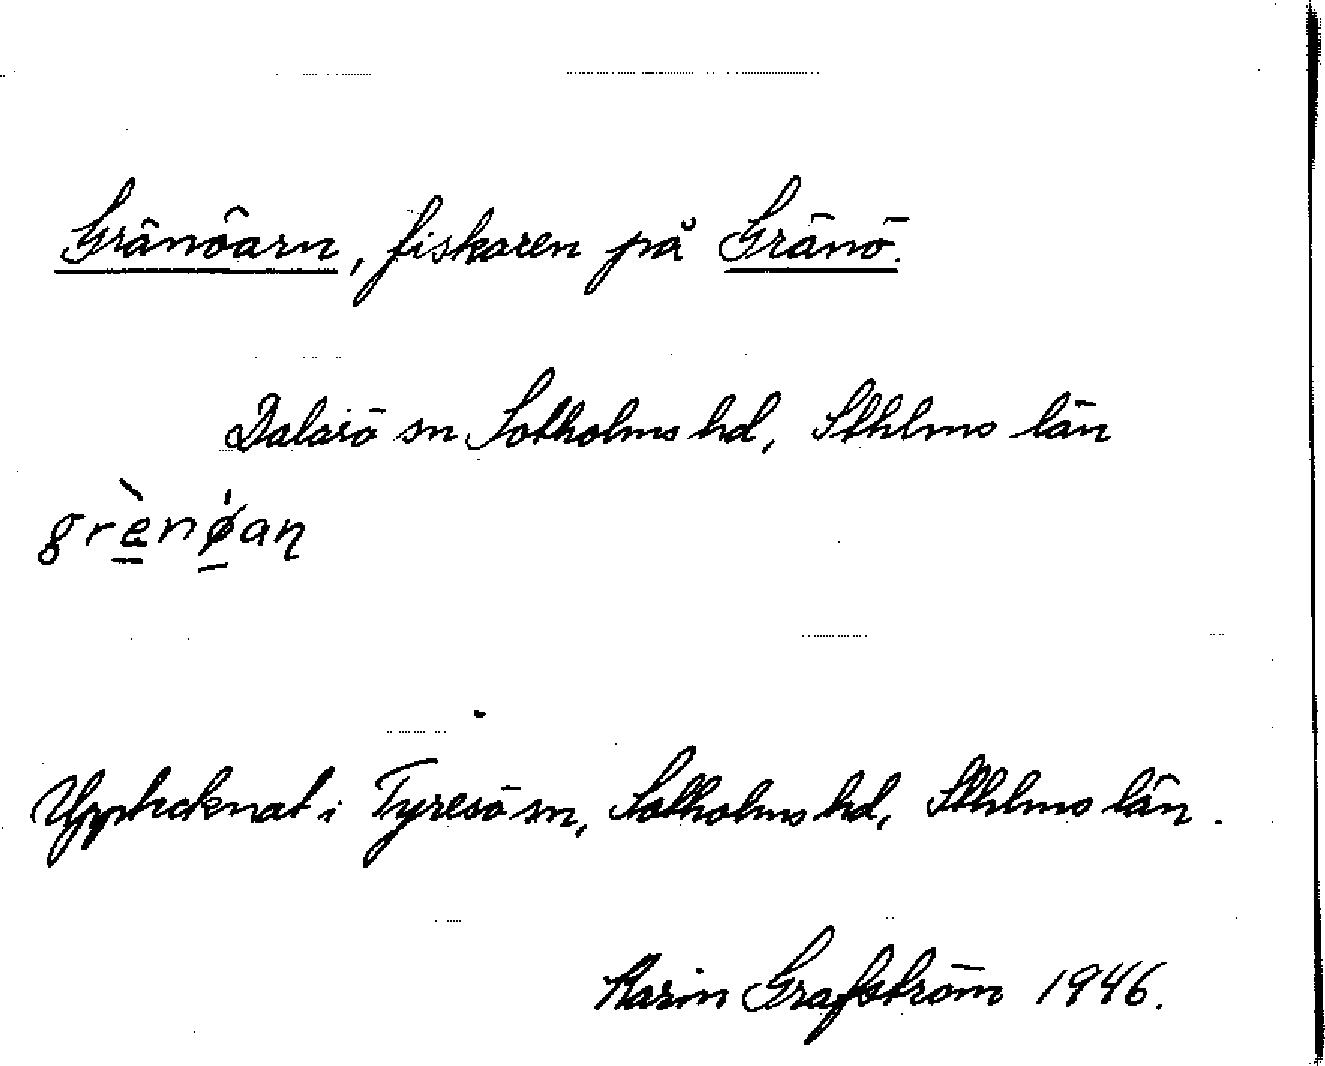 Gränöarn, fiskaren på Gränö.
Dalarö sn Sotholms hd, Sthlms län
grè̱nǿ̱aɳ
Upptecknat i Tyresö sn, Sotholms hd, Sthlms län.
Karin Grafström 1946.